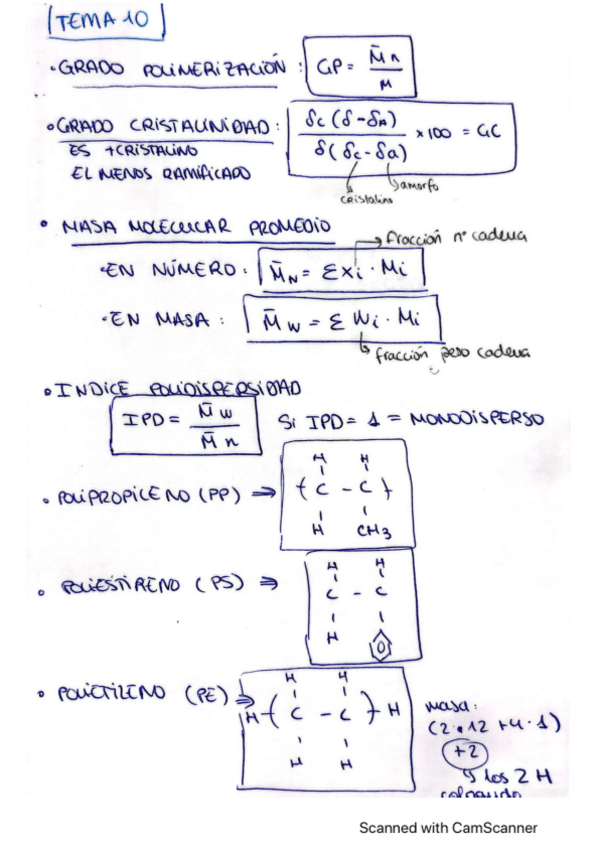 TEMA 10
• GRADO POLIMERIZACIÓN : GP = M̄n / M
• GRADO CRISTALINIDAD : δc (δ - δA) / δ (δc - δa) × 100 = GC
ES + CRISTALINO
EL MENOS RAMIFICADO
cristalino
amorfo
• MASA MOLECULAR PROMEDIO
fracción nº cadena
• EN NÚMERO : M̄N = Σ xi · Mi
• EN MASA : M̄w = Σ Wi · Mi
fracción peso cadena
• INDICE POLIDISPERSIDAD
IPD = M̄w / M̄n Si IPD = 1 = MONODISPERSO
H H
• POLIPROPILENO (PP) ⇒ ( C - C )
H CH3
H H
• POLIESTIRENO (PS) ⇒ C - C
H
H H
• POLIETILENO (PE) ⇒ H ( C - C ) H
H H
masa:
(2·12 + 4·1)
+2
los 2 H
colgando
Scanned with CamScanner